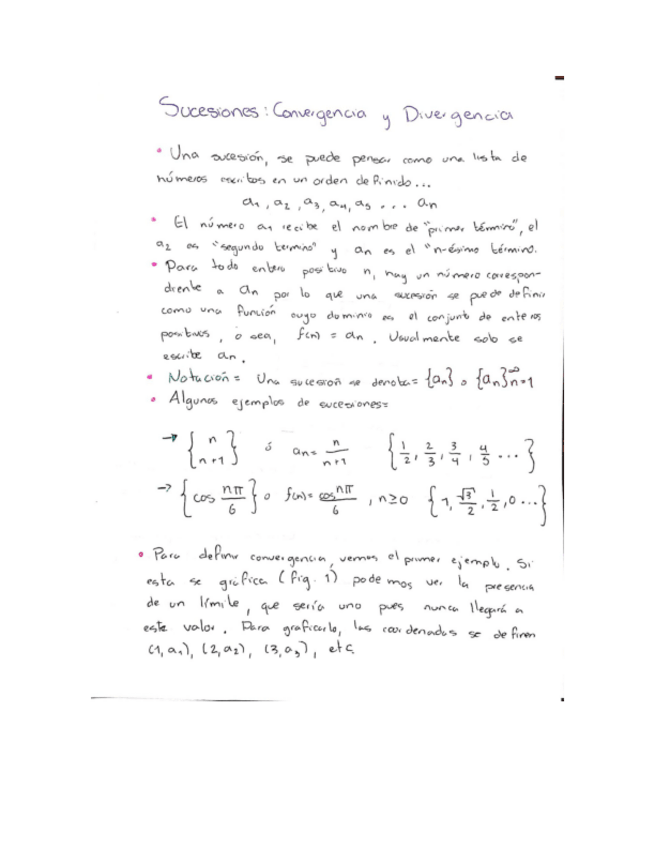 Sucesiones: Convergencia y Divergencia
• Una sucesión, se puede pensar como una lista de
números escritos en un orden definido...
a1, a2, a3, a4, a5 ... an
• El número a1 recibe el nombre de "primer término", el
a2 es "segundo termino" y an es el "n-ésimo término.
• Para todo entero positivo n, hay un número correspon-
diente a an por lo que una sucesión se puede definir
como una función cuyo dominio es el conjunto de enteros
positivos, o sea, f(n) = an. Usualmente solo se
escribe an.
• Notación = Una sucesión se denota = {an} o {an}∞n=1
• Algunos ejemplos de sucesiones =
→ {n/n+1} ó an = n/n+1 {1/2, 2/3, 3/4, 4/5 ...}
→ {cos nπ/6} o f(n) = cos nπ/6, n≥0 {1, √3/2, 1/2, 0...}
• Para definir convergencia, vemos el primer ejemplo. Si
esta se gráfica (fig. 1) podemos ver la presencia
de un límite, que sería uno pues nunca llegará a
este valor. Para graficarlo, las coordenadas se definen
(1, a1), (2, a2), (3, a3), etc.